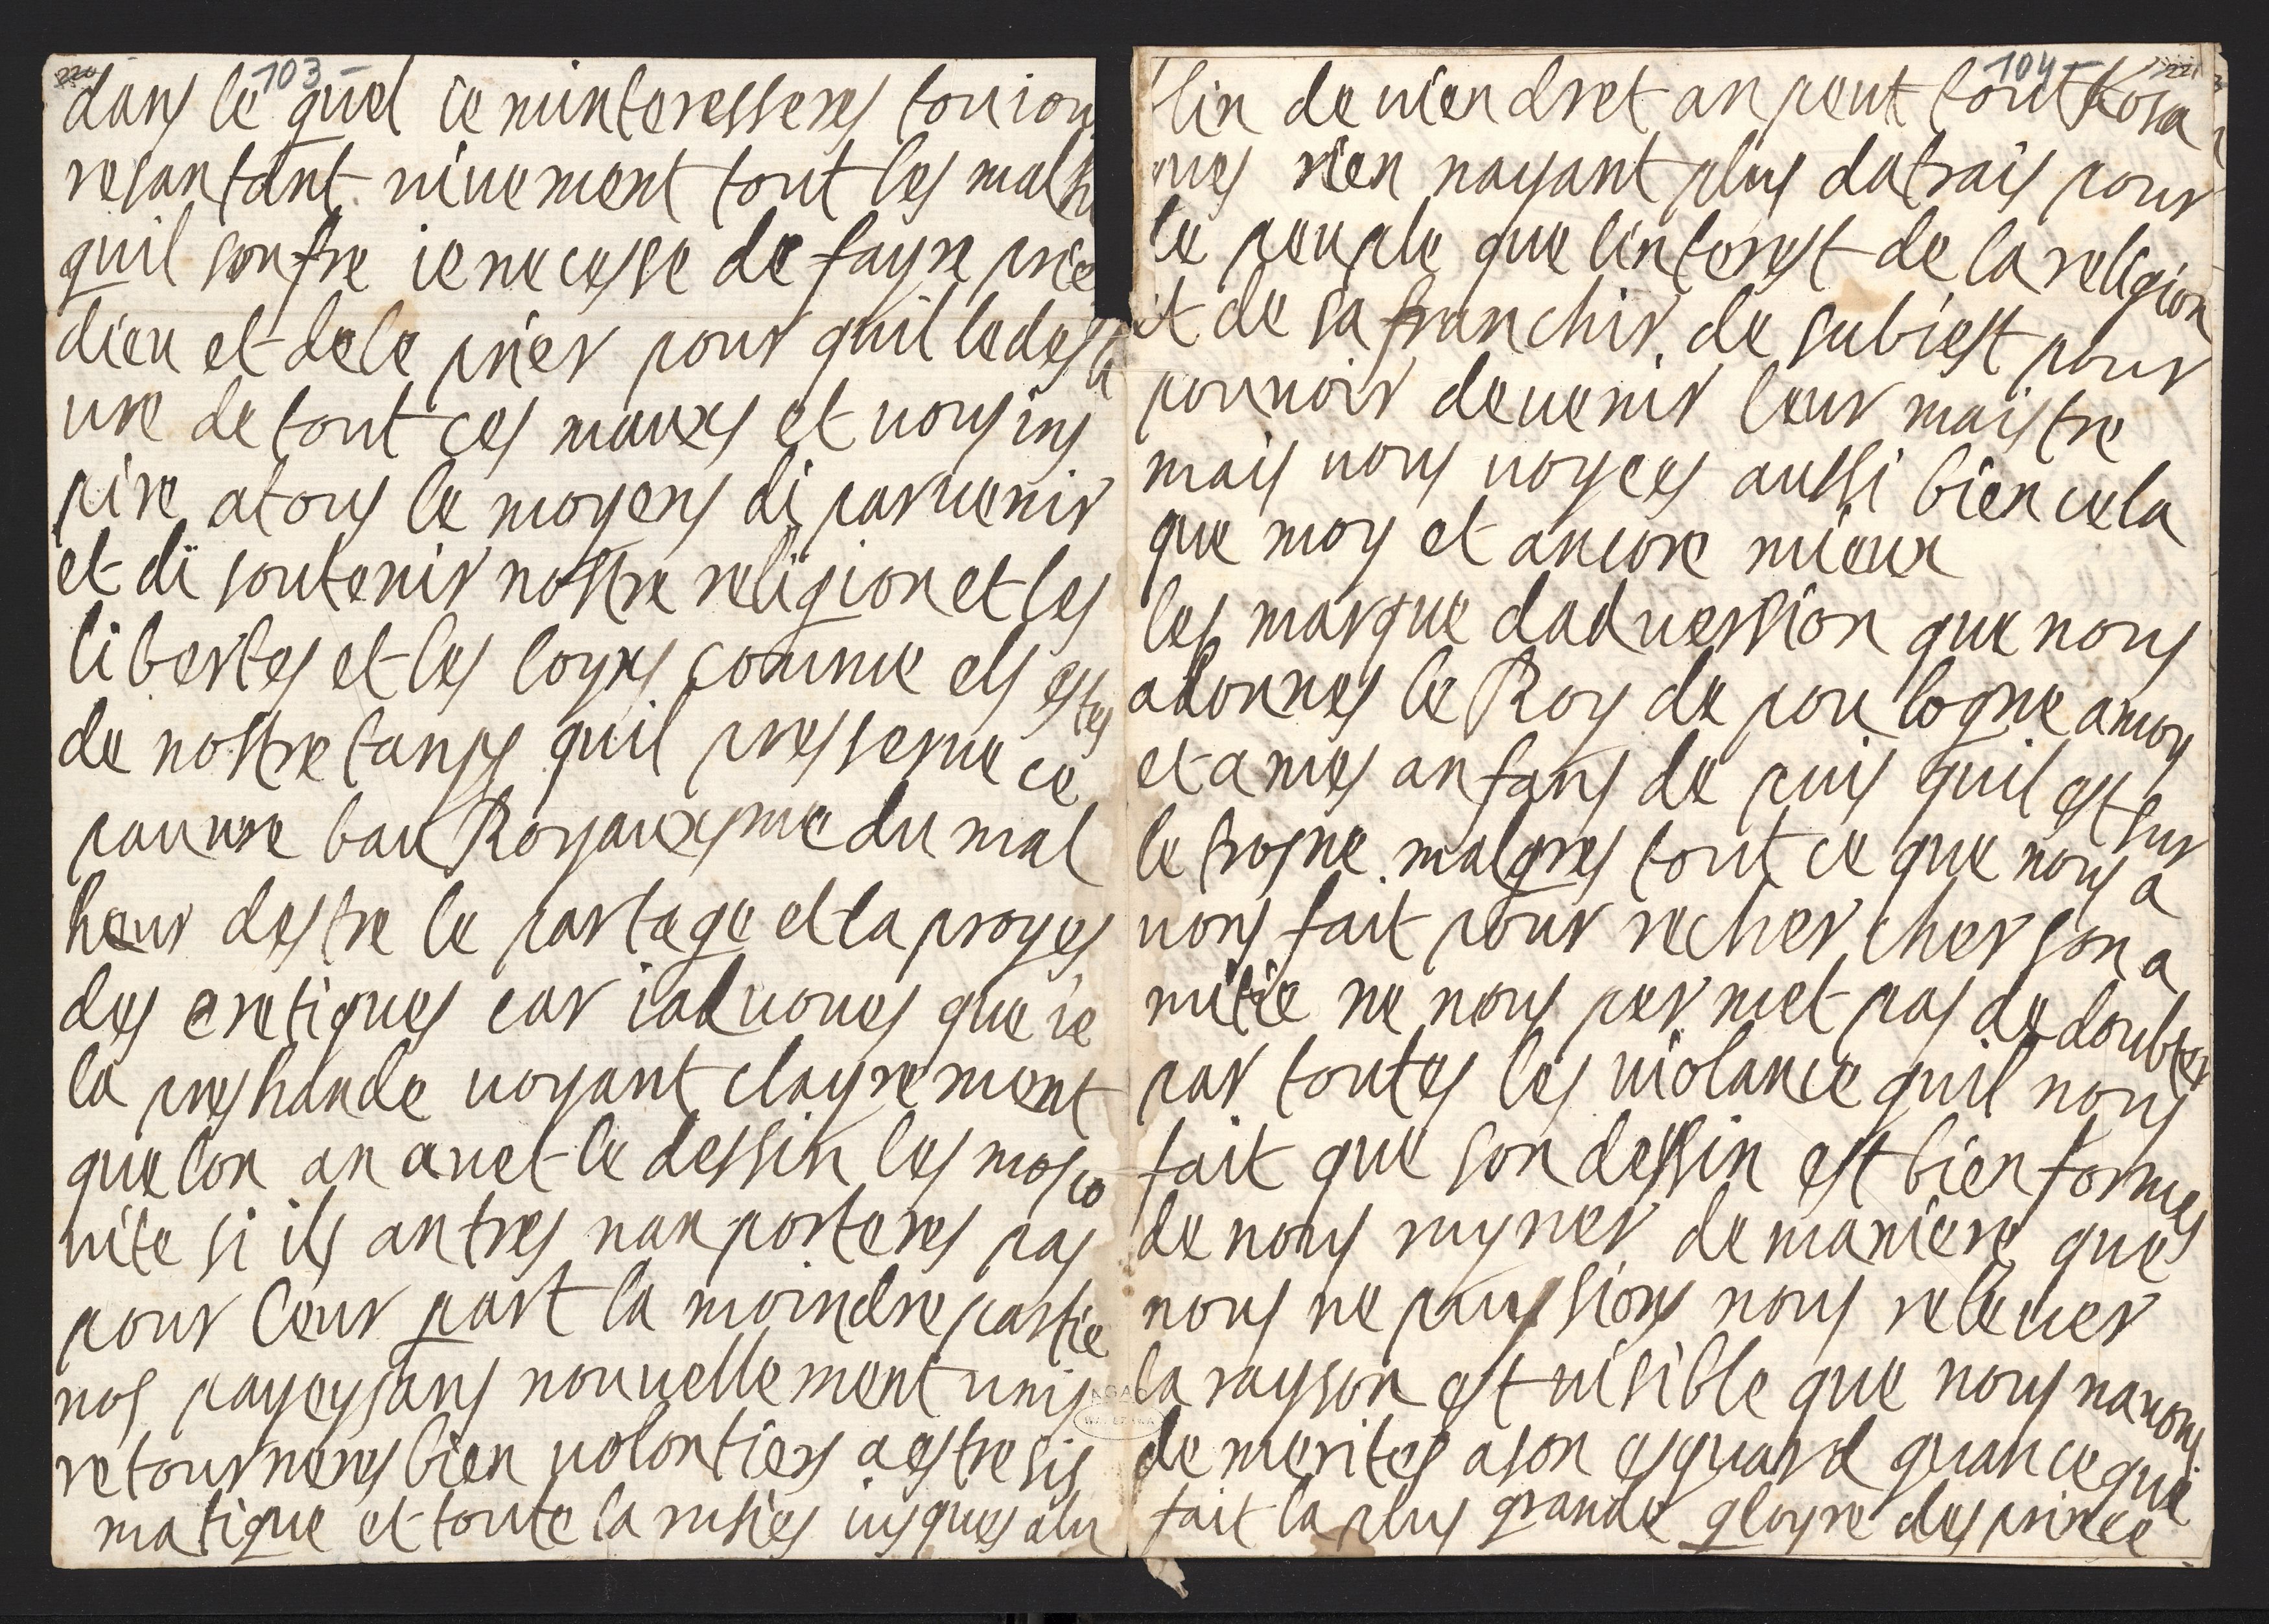 220
103 –
dans le quel ie minteresseres touiou
resantant viuement tout les malh
quil soufre ie ne cesse de fayre prie
dieu et de le prier pour quil le desli
ure de tout ces mauxs et vous ins
pire a tous le moyens di paruenir
et di soutenir nostre religion et les
libertes et les loyxs comme els estes
de nostre tanps quil presserue ce
pauure bau Royauxsme du mal
heur destre le partage et la proyes
des eretiques car iaduoues que ie
la preshande uoyant clayrement
que lon an auet le dessin les mosco
uite si ils antres nanporteres pas
pour leur part la moindre partie
nos payeysans nouuellement unis
retourneres bien uolontiers a estre sis
matique et toute la rusies iusques a lu
104 –
221
blin deuiendret an peut tout Kosa
ques rien nayant plus datrais pour
le peuple que linterest de la religion
et de safranchir de subiest pour
pouuoir deuenir leur maistre
mais vous voyees aussi bien cela
que moy et ancore mieux
les marque daduersion que nous
a donnes le Roy de poulogne a moy
et a mes anfans de puis quil est sur
le trosne malgres tout ce que nous a
uons fait pour recher cher son a
mitie ne nous permet pas de doubter
par toutes les violance quil nous
fait que son dessin est bien formes
de nous ruyner de maniere ques
nous ne puissions nous releuer
la rayson est uisible que nous nauons
de merites a son esguard quan ce que
fait la plus grande gloyre des prince